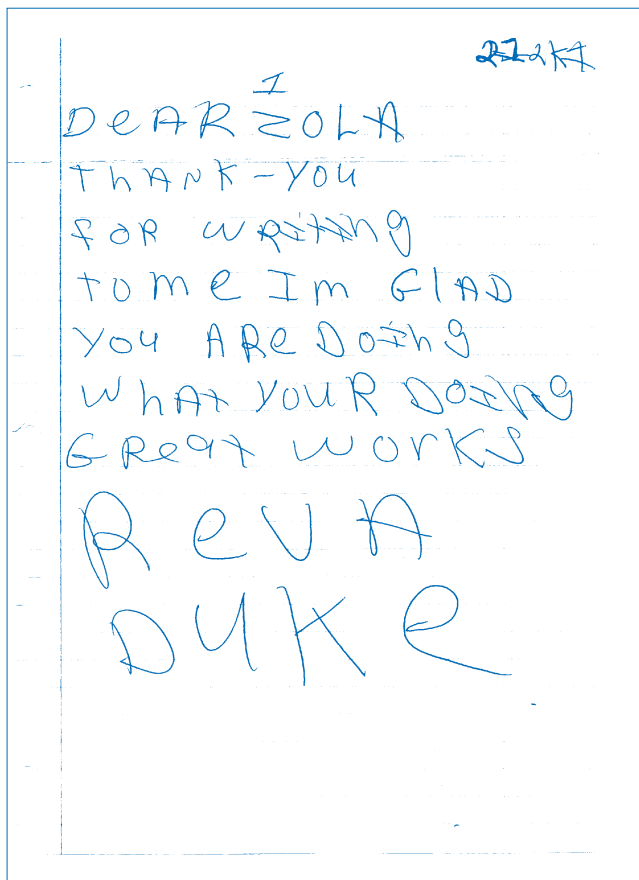 1
DeAR ZOLA
thANK-YOU
foR WRITING
tome Im GlAD
YOU ARe DoIhg
WhAt YOUR DOINg
GReat WorKS
ReVA
DUKe